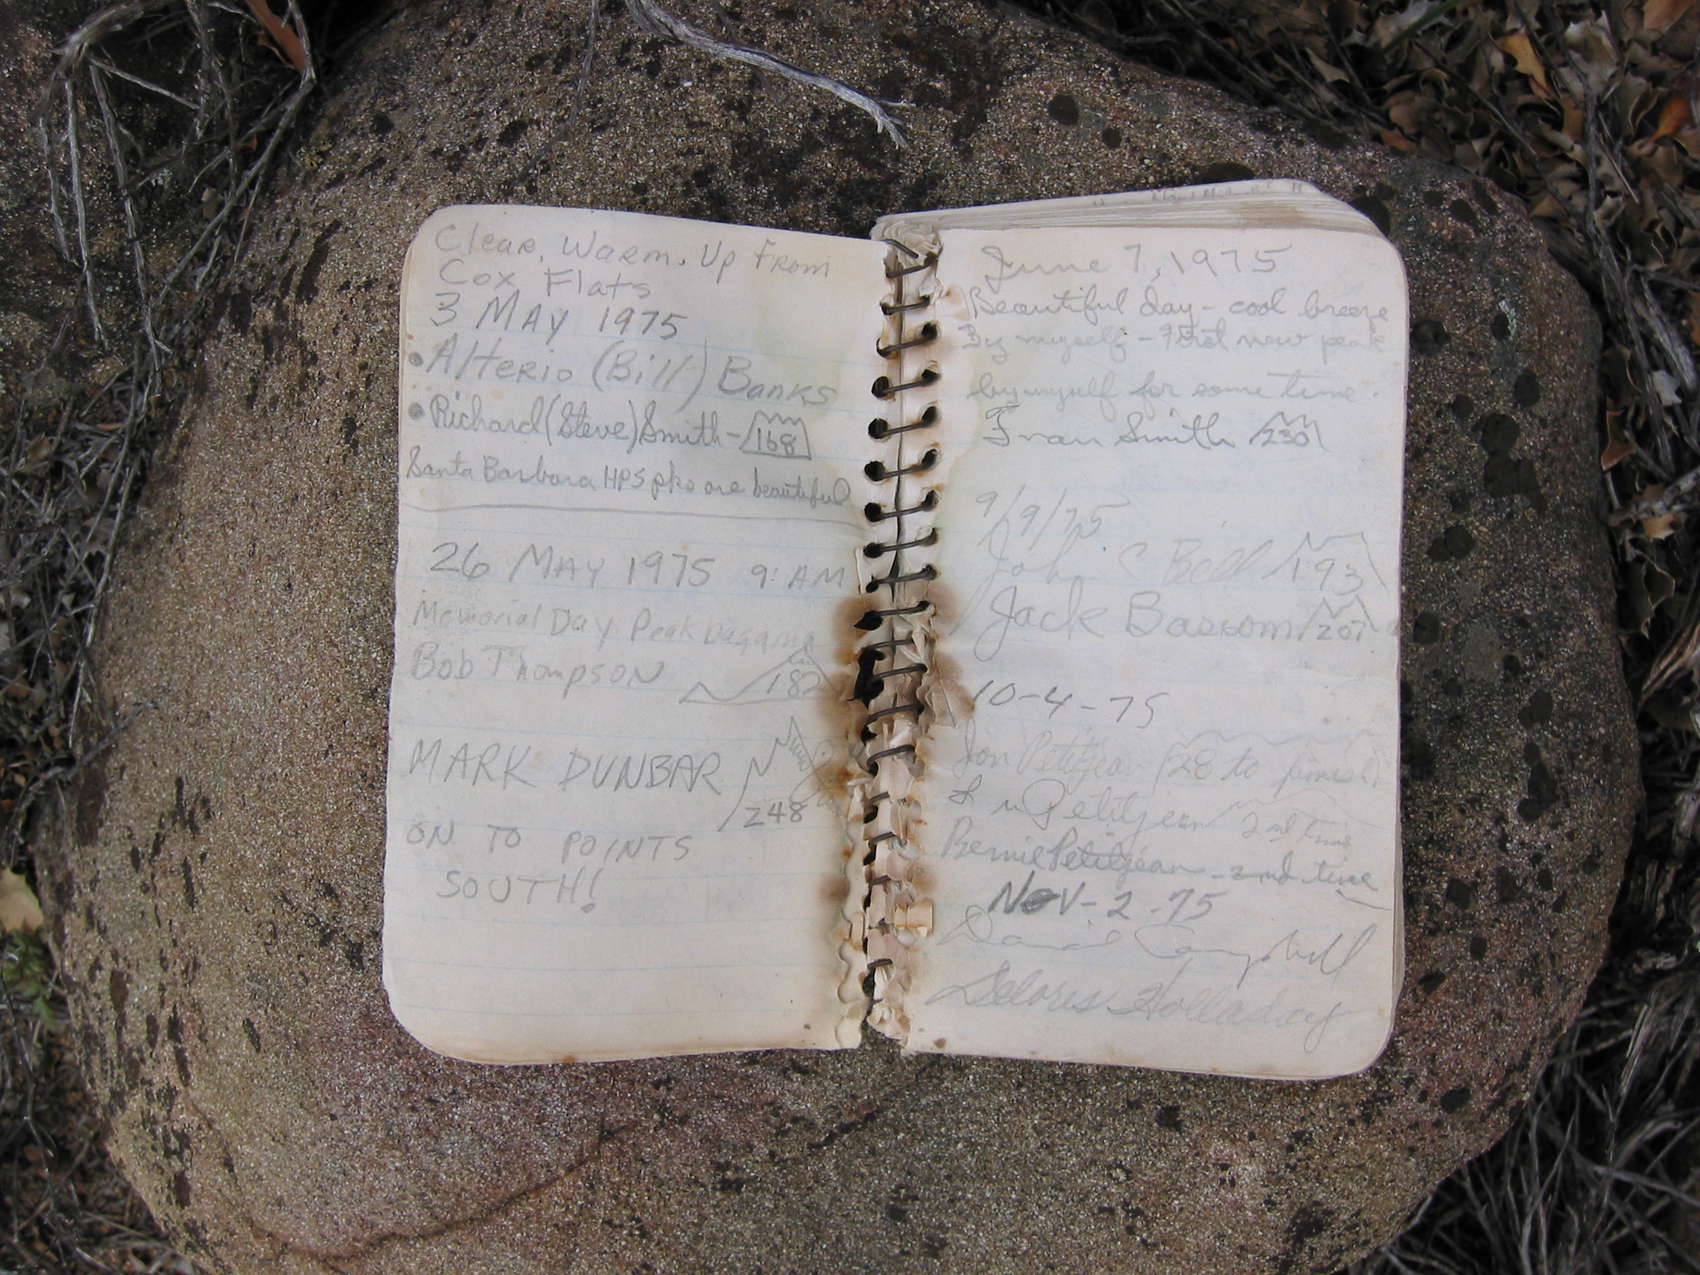 Clear, Warm. Up From
Cox Flats
3 MAY 1975
• Alterio (Bill) Banks
• Richard (Steve) Smith - 168
Santa Barbara HPS pks are beautiful
26 MAY 1975 9: AM
Memorial Day Peak
Bob Thompson 182
MARK DUNBAR
248
ON TO POINTS
SOUTH!
June 7, 1975
Beautiful day - cool breeze
By myself - First new peak
by myself for some time.
Fran Smith 230
9/9/75
John C Bell 193
Jack Bascom 207
10-4-75
Jon Petitjean (28 to finish)
Petitjean 2nd time
Bernie Petitjean - 2nd time
Nov - 2 - 75
David Campbell
Deloris Holladay